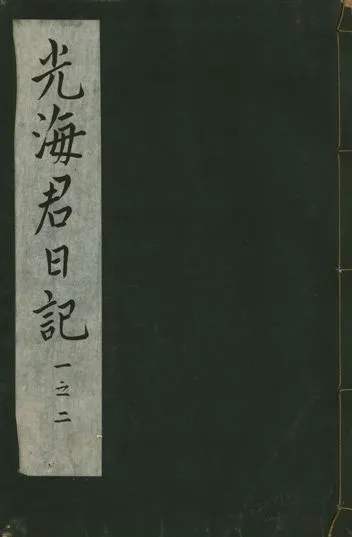 光海君日記 一之二